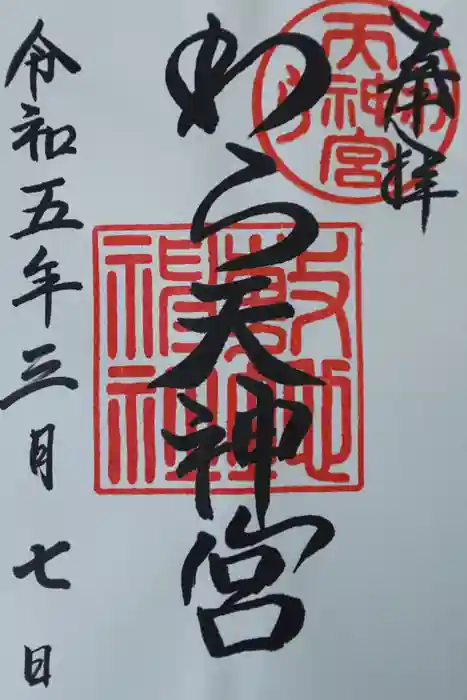 奉拝
わら天神宮
令和五年三月七日
天神宮
敷地
神社